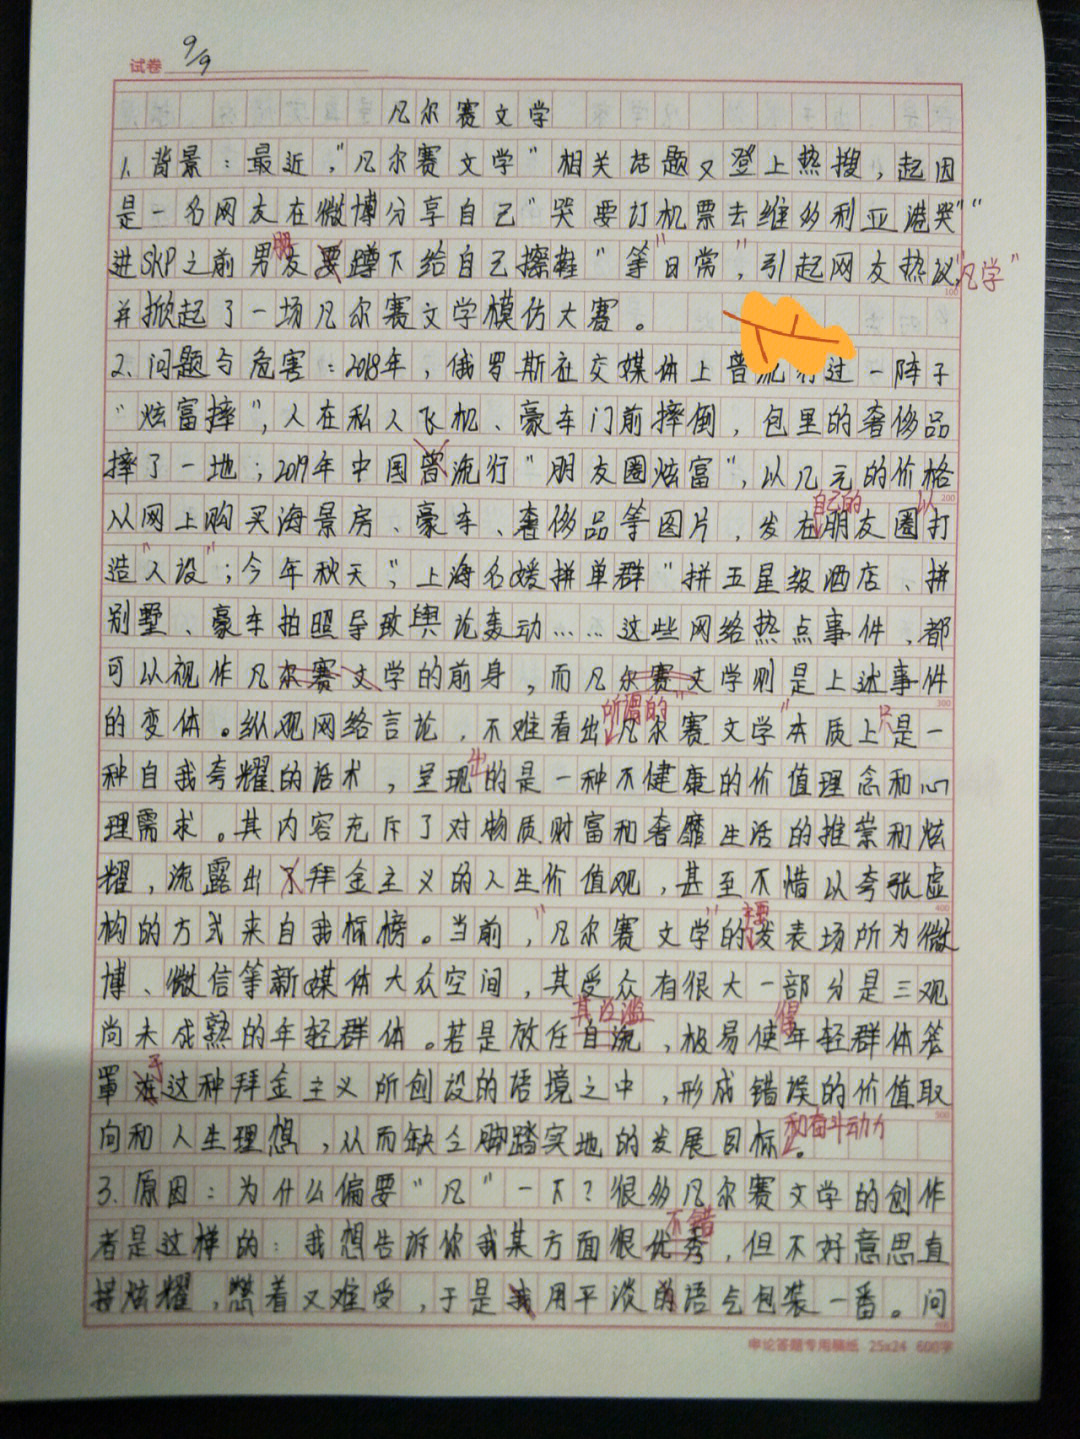 试卷 9/9
凡尔赛文学
1. 背景：最近，"凡尔赛文学"相关话题又登上热搜，起因
是一名网友在微博分享自己"哭要订机票去维多利亚港哭""
进SKP之前男朋友要蹲下给自己擦鞋"等"日常"，引起网友热议，"凡学"
并掀起了一场凡尔赛文学模仿大赛。
2. 问题与危害：2018年，俄罗斯社交媒体上曾流行过一阵子
"炫富摔"，人在私人飞机、豪车门前摔倒，包里的奢侈品
摔了一地；2019年中国曾流行"朋友圈炫富"，以几元的价格
自己的 以
从网上购买海景房、豪车、奢侈品等图片，发在朋友圈打
造"人设"；今年秋天，"上海名媛拼单群"拼五星级酒店、拼
别墅、豪车拍照导致舆论轰动……这些网络热点事件，都
可以视作凡尔赛文学的前身，而凡尔赛文学则是上述事件
所谓的 只
的变体。纵观网络言论，不难看出"凡尔赛文学"本质上是一
种自我夸耀的话术，呈现出的是一种不健康的价值理念和心
理需求。其内容充斥了对物质财富和奢靡生活的推崇和炫
耀，流露出拜金主义的人生价值观，甚至不惜以夸张虚
主要
构的方式来自我标榜。当前，"凡尔赛文学"的发表场所为微
博、微信等新媒体大众空间，其受众有很大一部分是三观
其泛滥 得
尚未成熟的年轻群体。若是放任自流，极易使年轻群体笼
罩于这种拜金主义所创设的语境之中，形成错误的价值取
和奋斗动力
向和人生理想，从而缺乏脚踏实地的发展目标。
3. 原因：为什么偏要"凡"一下？很多凡尔赛文学的创作
不错
者是这样的：我想告诉你我某方面很优秀，但不好意思直
接炫耀，憋着又难受，于是我用平淡的语气包装一番。问
申论答题专用稿纸 25x24 600字